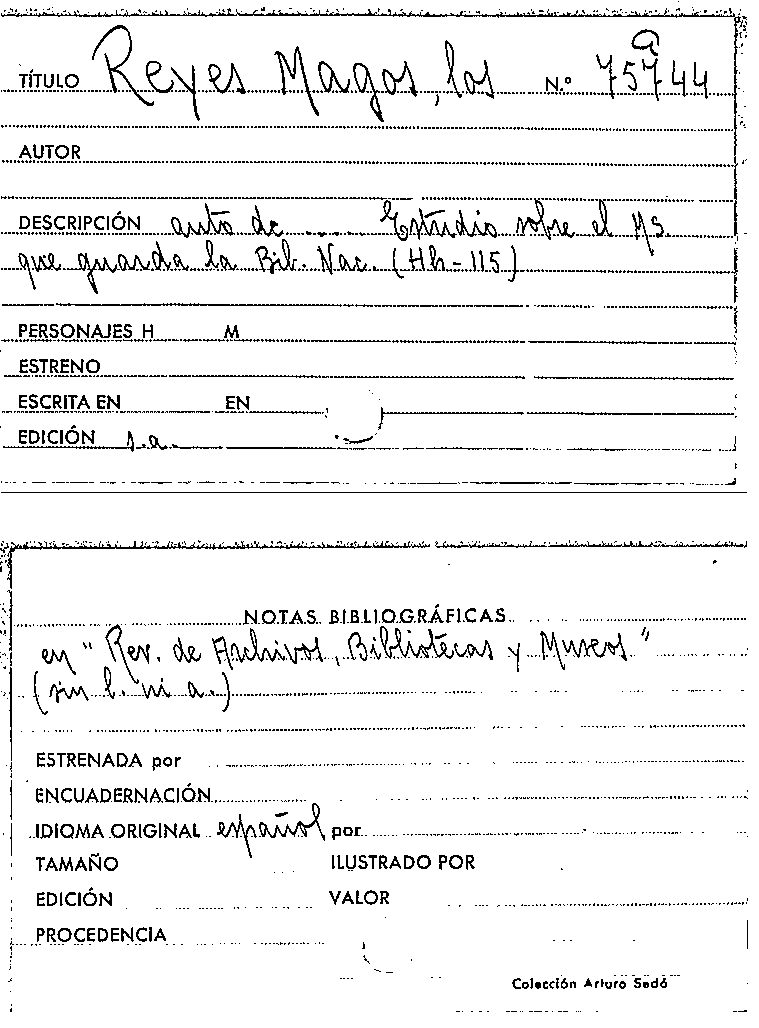 a
TÍTULO Reyes Magos, los N.º 75744
AUTOR
DESCRIPCIÓN auto de .... Estudio sobre el Ms.
que guarda la Bib. Nac. (Hh-115)
PERSONAJES H M
ESTRENO
ESCRITA EN EN
EDICIÓN s.a.
NOTAS BIBLIOGRÁFICAS
en "Rev. de Archivos, Bibliotecas y Museos"
(sin l. ni a.)
ESTRENADA por
ENCUADERNACIÓN
IDIOMA ORIGINAL español por
TAMAÑO ILUSTRADO POR
EDICIÓN VALOR
PROCEDENCIA
Colección Arturo Sedó